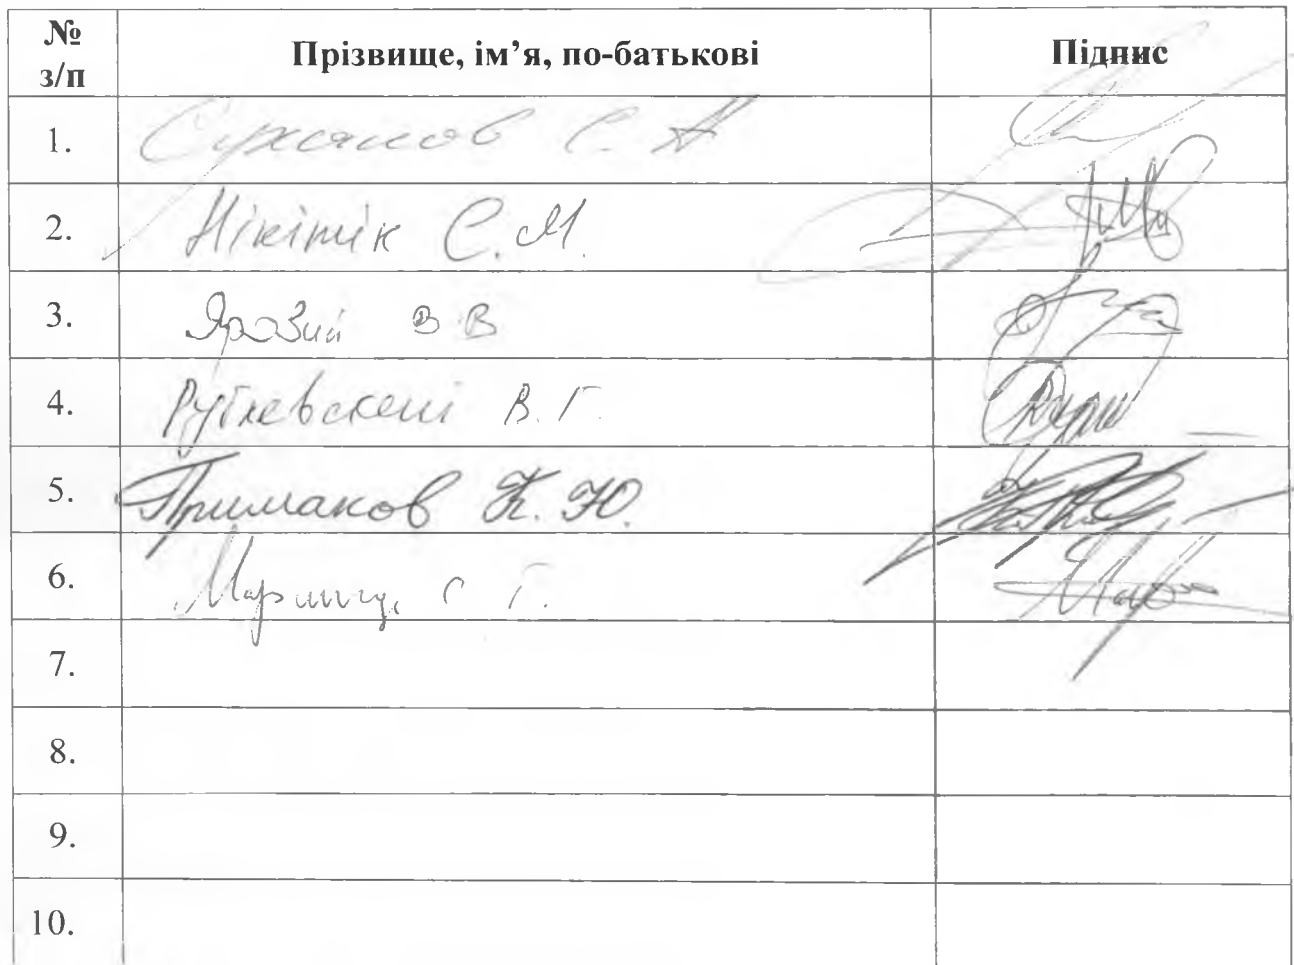 № з/п Прізвище, ім’я, по-батькові Підпис
1. Суханов С. А
2. Нікітік С. М.
3. Яровий В В
4. Руткевський В. Г.
5. Примаков К. Ю.
6. С Г.
7.
8.
9.
10.